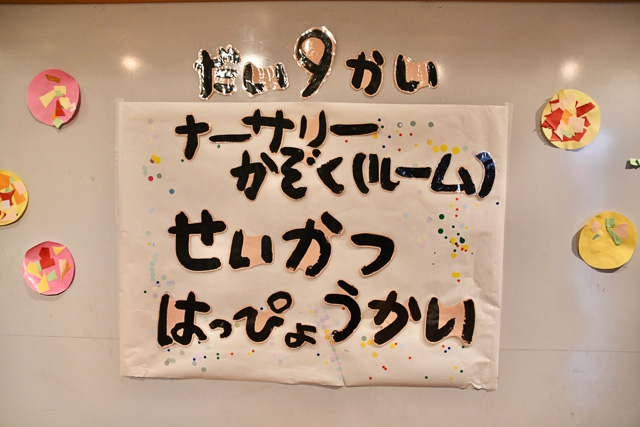 だい9かい
ナーサリー
かぞく(ルーム)
せいかつ
はっぴょうかい